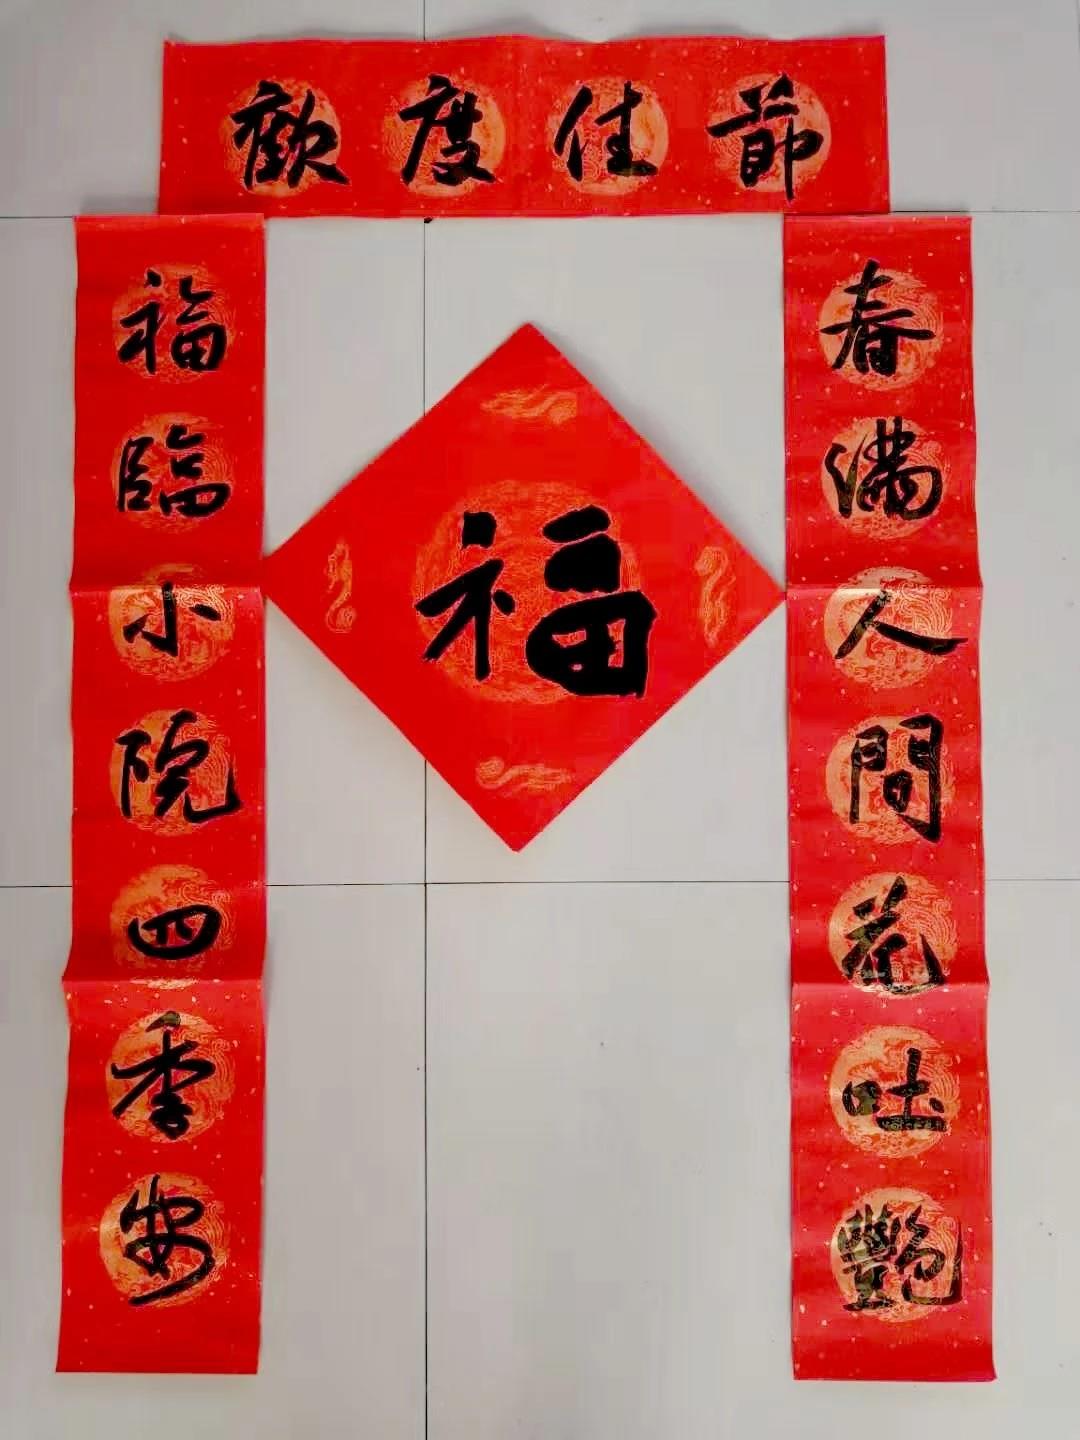 歡度佳節
春滿人間花吐艷
福臨小院四季安
福